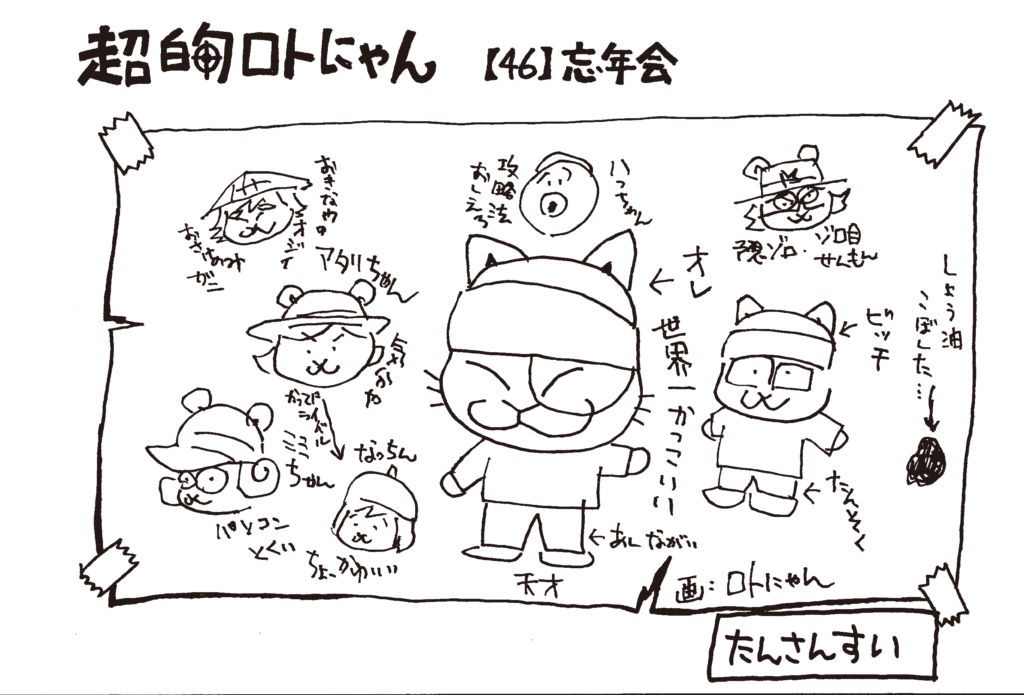 超的ロトにゃん 【46】忘年会
おきなわの
オジイ
おさけのみ
ガニ
攻略法
おしえろ
ハっちゃん
予想ゾロ・ゾロ目
せんもん
アタリちゃん
かってに
ライバル
ミミコ
ちゃん
パソコン
とくい
なっちん
ちょっかわいい
オレ
世界一かっこいい
←あしながい
天才
ビッチ
←たんそく
しょう油
こぼした…
画:ロトにゃん
たんさんすい